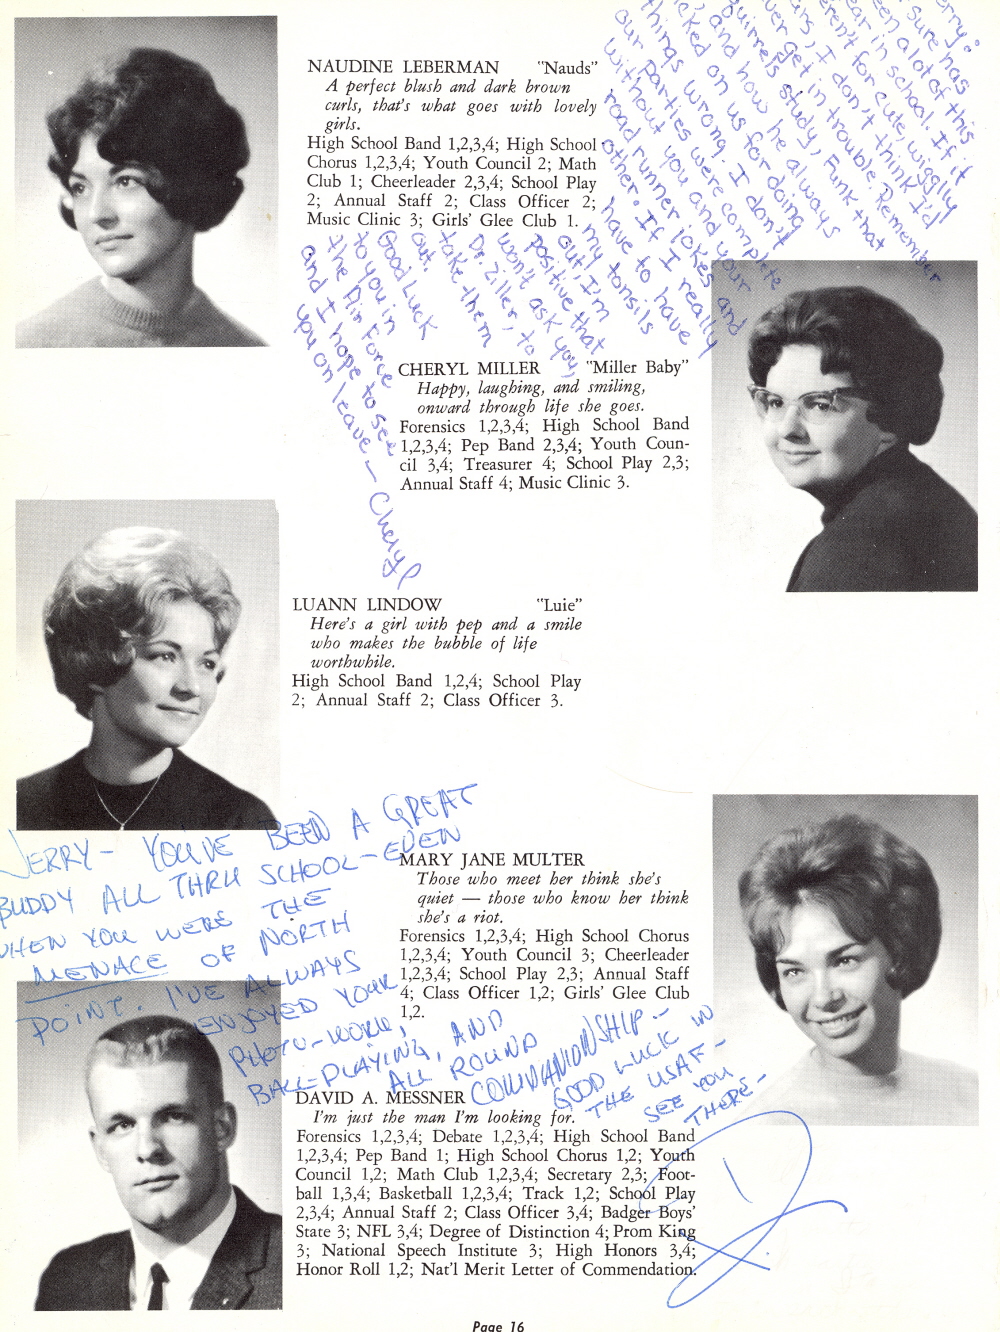 NAUDINE LEBERMAN "Nauds"
A perfect blush and dark brown
curls, that's what goes with lovely
girls.
High School Band 1,2,3,4; High School
Chorus 1,2,3,4; Youth Council 2; Math
Club 1; Cheerleader 2,3,4; School Play
2; Annual Staff 2; Class Officer 2;
Music Clinic 3; Girls' Glee Club 1.
sure has
een a lot of this
ear in school. If it
eren't for cute, wiggly
I don't think I'd
ver get in trouble. Remember
quirrels study, Funk that
and how he always
icked on us for doing
things wrong. I don't
our parties were complete
without you and your
road runner jokes and
other. If I really
have to have
my tonsils
out I'm
positive that
won't ask you,
Dr. Ziller, to
take them
out.
Good Luck
to you in
the Air Force
and I hope to see
you on leave —
Cheryl
CHERYL MILLER "Miller Baby"
Happy, laughing, and smiling,
onward through life she goes.
Forensics 1,2,3,4; High School Band
1,2,3,4; Pep Band 2,3,4; Youth Coun-
cil 3,4; Treasurer 4; School Play 2,3;
Annual Staff 4; Music Clinic 3.
LUANN LINDOW "Luie"
Here's a girl with pep and a smile
who makes the bubble of life
worthwhile.
High School Band 1,2,4; School Play
2; Annual Staff 2; Class Officer 3.
JERRY — YOU'VE BEEN A GREAT
BUDDY ALL THRU SCHOOL — EVEN
WHEN YOU WERE THE
MENACE OF NORTH
POINT. I'VE ALWAYS
ENJOYED YOUR
PHOTO-WORK,
BALL-PLAYING, AND
ALL ROUND
COMPANIONSHIP —
GOOD LUCK IN
THE USAF —
SEE YOU
THERE —
MARY JANE MULTER
Those who meet her think she's
quiet — those who know her think
she's a riot.
Forensics 1,2,3,4; High School Chorus
1,2,3,4; Youth Council 3; Cheerleader
1,2,3,4; School Play 2,3; Annual Staff
4; Class Officer 1,2; Girls' Glee Club
1,2.
DAVID A. MESSNER
I'm just the man I'm looking for.
Forensics 1,2,3,4; Debate 1,2,3,4; High School Band
1,2,3,4; Pep Band 1; High School Chorus 1,2; Youth
Council 1,2; Math Club 1,2,3,4; Secretary 2,3; Foot-
ball 1,3,4; Basketball 1,2,3,4; Track 1,2; School Play
2,3,4; Annual Staff 2; Class Officer 3,4; Badger Boys'
State 3; NFL 3,4; Degree of Distinction 4; Prom King
3; National Speech Institute 3; High Honors 3,4;
Honor Roll 1,2; Nat'l Merit Letter of Commendation.
Page 16